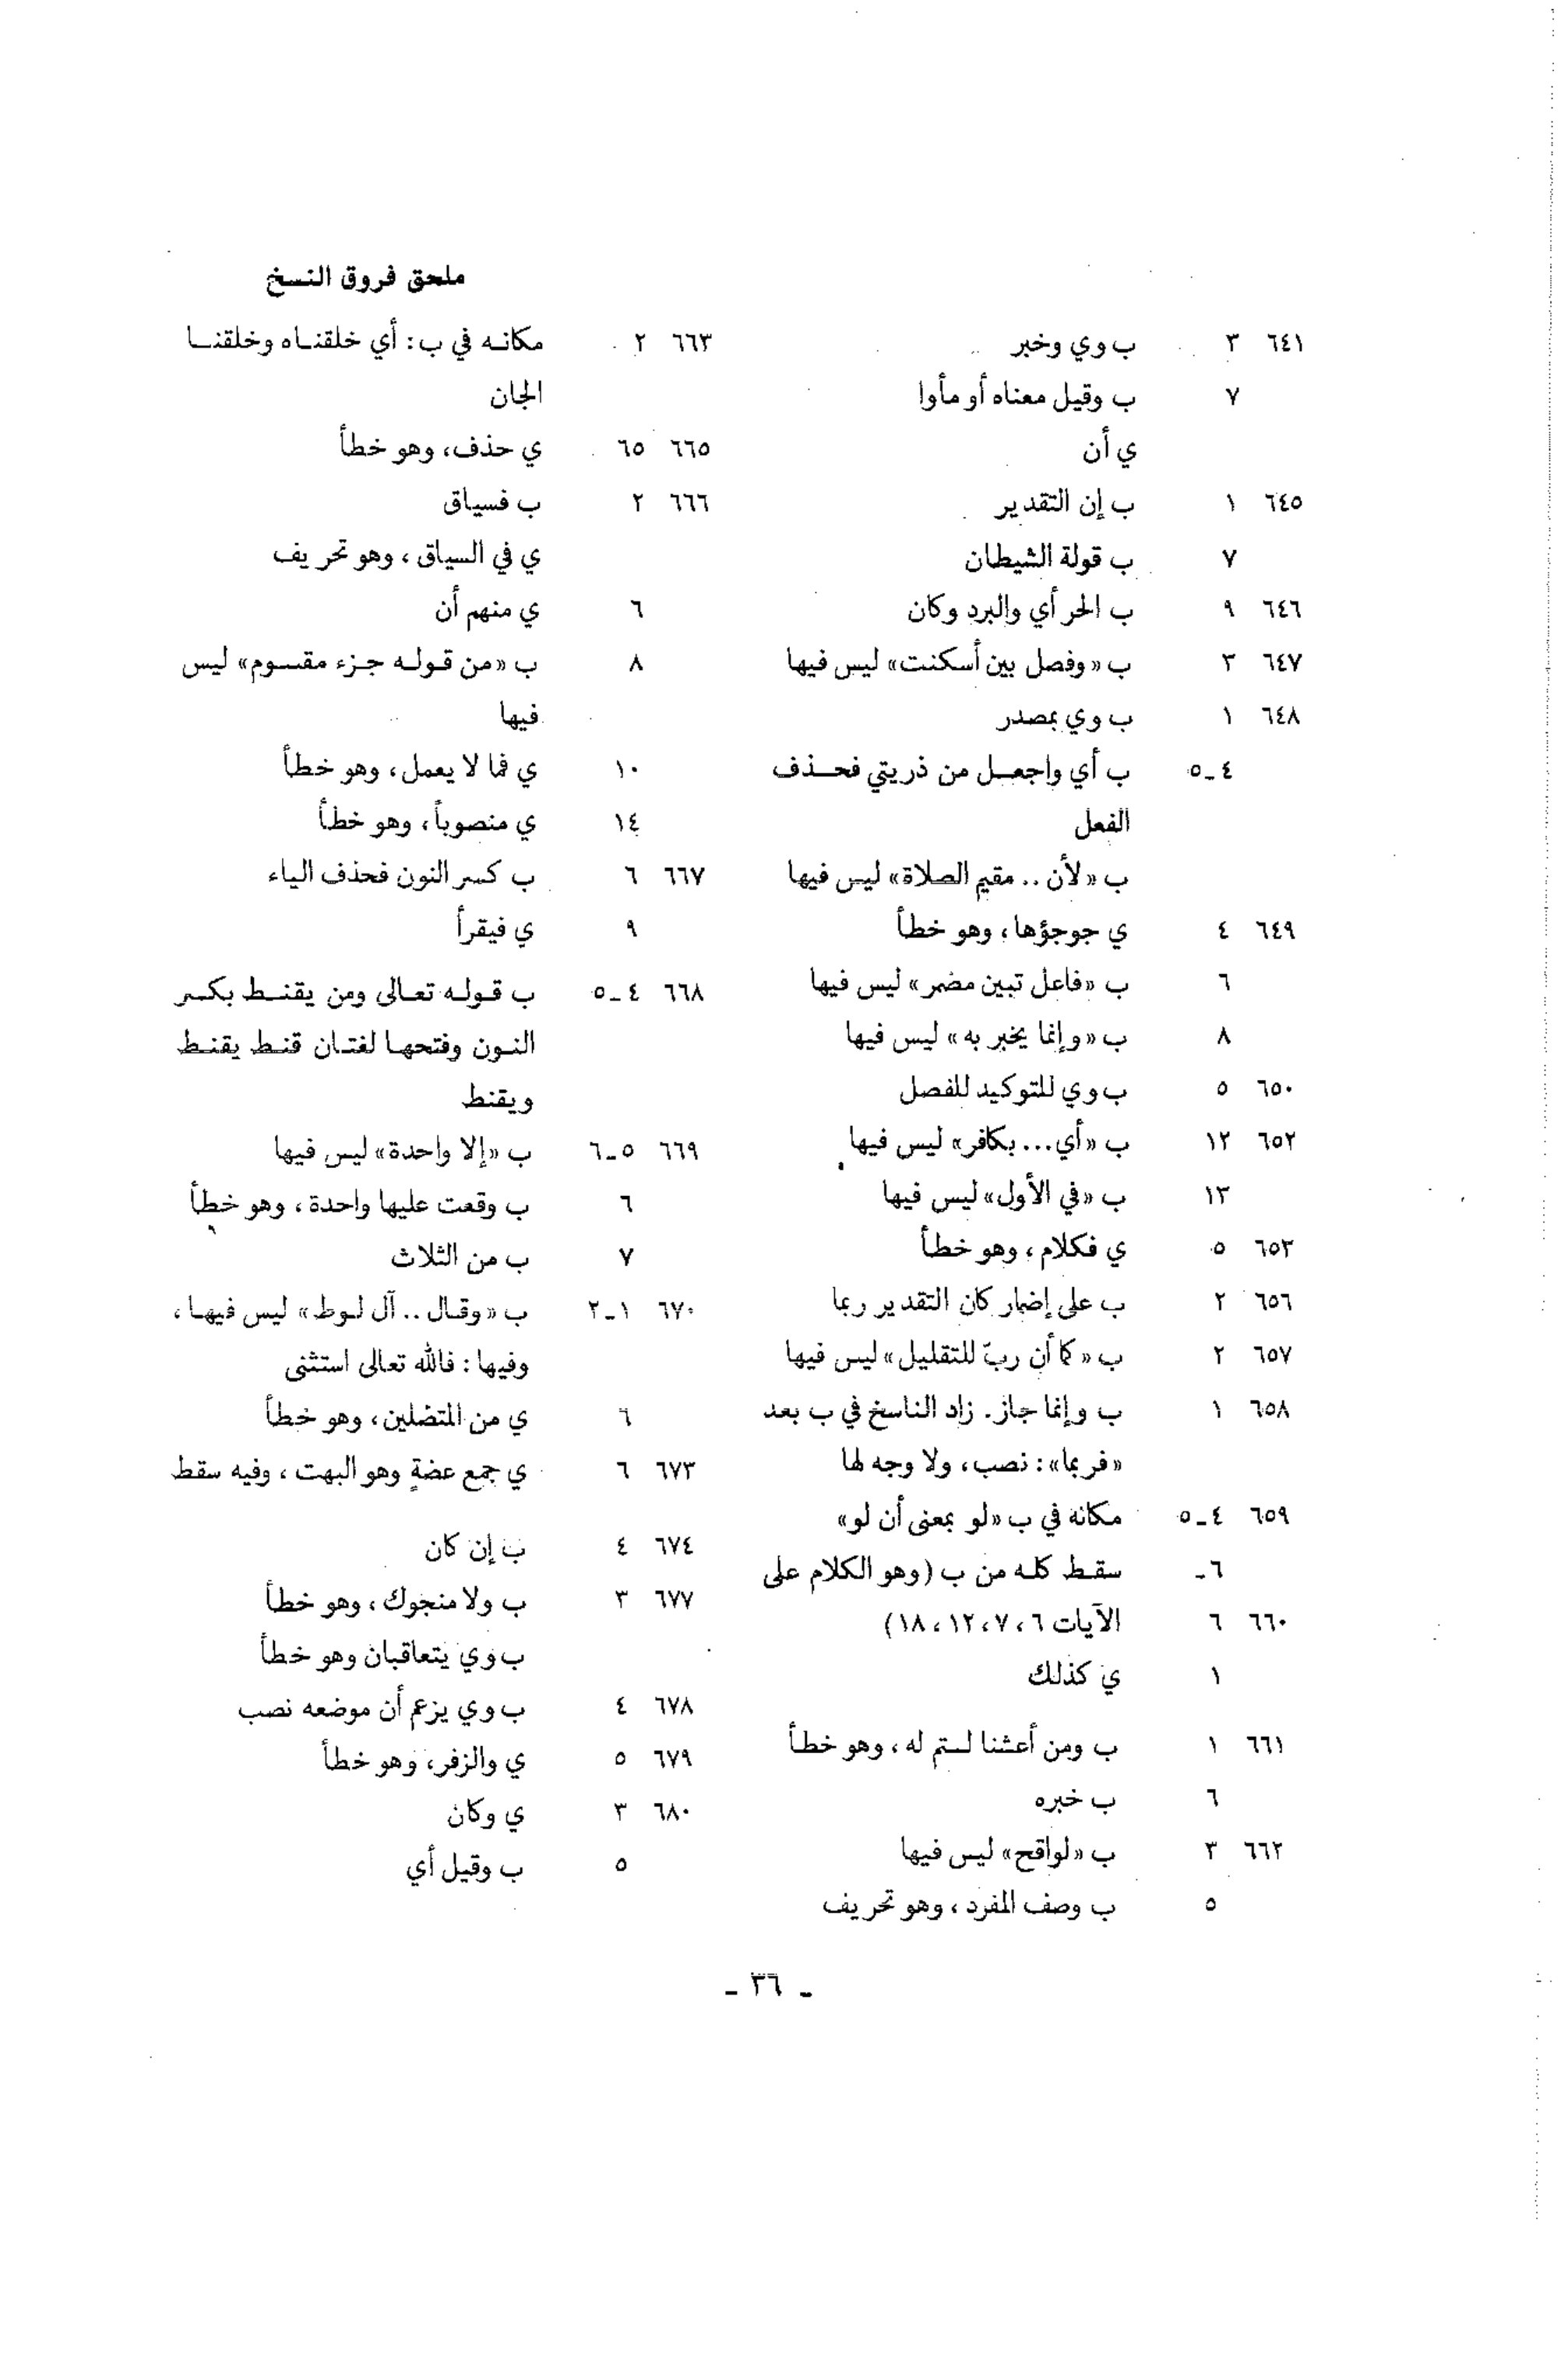 ملحق فروق النسخ
٦٤١ ٣ ب وي وخبر
٧ ب وقيل معناه أو مأوا
ي أن
٦٤٥ ١ ب إن التقدير
٧ ب قولة الشيطان
٦٤٦ ٩ ب الحر أي والبرد وكان
٦٤٧ ٣ ب «وفصل بين أسكنت» ليس فيها
٦٤٨ ١ ب وي بمصدر
٤ـ٥ ب أي واجعـل من ذريتي فحـذف
الفعل
ب «لأن .. مقيم الصلاة» ليس فيها
٦٤٩ ٤ ي جوجؤها، وهو خطأ
٦ ب «فاعل تبين مضمر» ليس فيها
٨ ب «وإنما يخبر به» ليس فيها
٦٥٠ ٥ ب وي للتوكيد للفصل
٦٥٢ ١٢ ب «أي... بكافر» ليس فيها
١٣ ب «في الأول» ليس فيها
٦٥٣ ٥ ي فكلام، وهو خطأ
٦٥٦ ٢ ب على إضمار كان التقدير ربما
٦٥٧ ٢ ب «كما أن ربّ للتقليل» ليس فيها
٦٥٨ ١ ب وإنما جاز. زاد الناسخ في ب بعد
«فربما»: نصب، ولا وجه لها
٦٥٩ ٤ـ٥ مكانه في ب «لو بمعنى أن لو»
٦ـ سقط كله من ب (وهو الكلام على
٦٦٠ ٦ الآيات ٦، ٧، ١٢، ١٨)
١ ي كذلك
٦٦١ ١ ب ومن أعشنا لستم له، وهو خطأ
٦ ب خبره
٦٦٢ ٣ ب «لواقح» ليس فيها
٥ ب وصف المفرد، وهو تحريف
٦٦٣ ٢ مكانه في ب: أي خلقناه وخلقنا
الجان
٦٦٥ ٦٥ ي حذف، وهو خطأ
٦٦٦ ٢ ب فسياق
ي في السياق، وهو تحريف
٦ ي منهم أن
٨ ب «من قوله جزء مقسوم» ليس
فيها
١٠ ي فما لا يعمل، وهو خطأ
١٤ ي منصوباً، وهو خطأ
٦٦٧ ٦ ب كسر النون فحذف الياء
٩ ي فيقرأ
٦٦٨ ٤ـ٥ ب قوله تعالى ومن يقنط بكسر
النون وفتحها لغتان قنط يقنط
ويقنط
٦٦٩ ٥ـ٦ ب «إلا واحدة» ليس فيها
٦ ب وقعت عليها واحدة، وهو خطأ
٧ ب من الثلاث
٦٧٠ ١ـ٢ ب «وقال .. آل لوط» ليس فيها،
وفيها: فالله تعالى استثنى
٦ ي من المتضلين، وهو خطأ
٦٧٣ ٦ ي جمع عضةٍ وهو البهت، وفيه سقط
٦٧٤ ٤ ب إن كان
٦٧٧ ٣ ب ولا منجوك، وهو خطأ
ب وي يتعاقبان وهو خطأ
٦٧٨ ٤ ب وي يزعم أن موضعه نصب
٦٧٩ ٥ ي والزفر، وهو خطأ
٦٨٠ ٣ ي وكان
٥ ب وقيل أي
ـ ٣٦ ـ